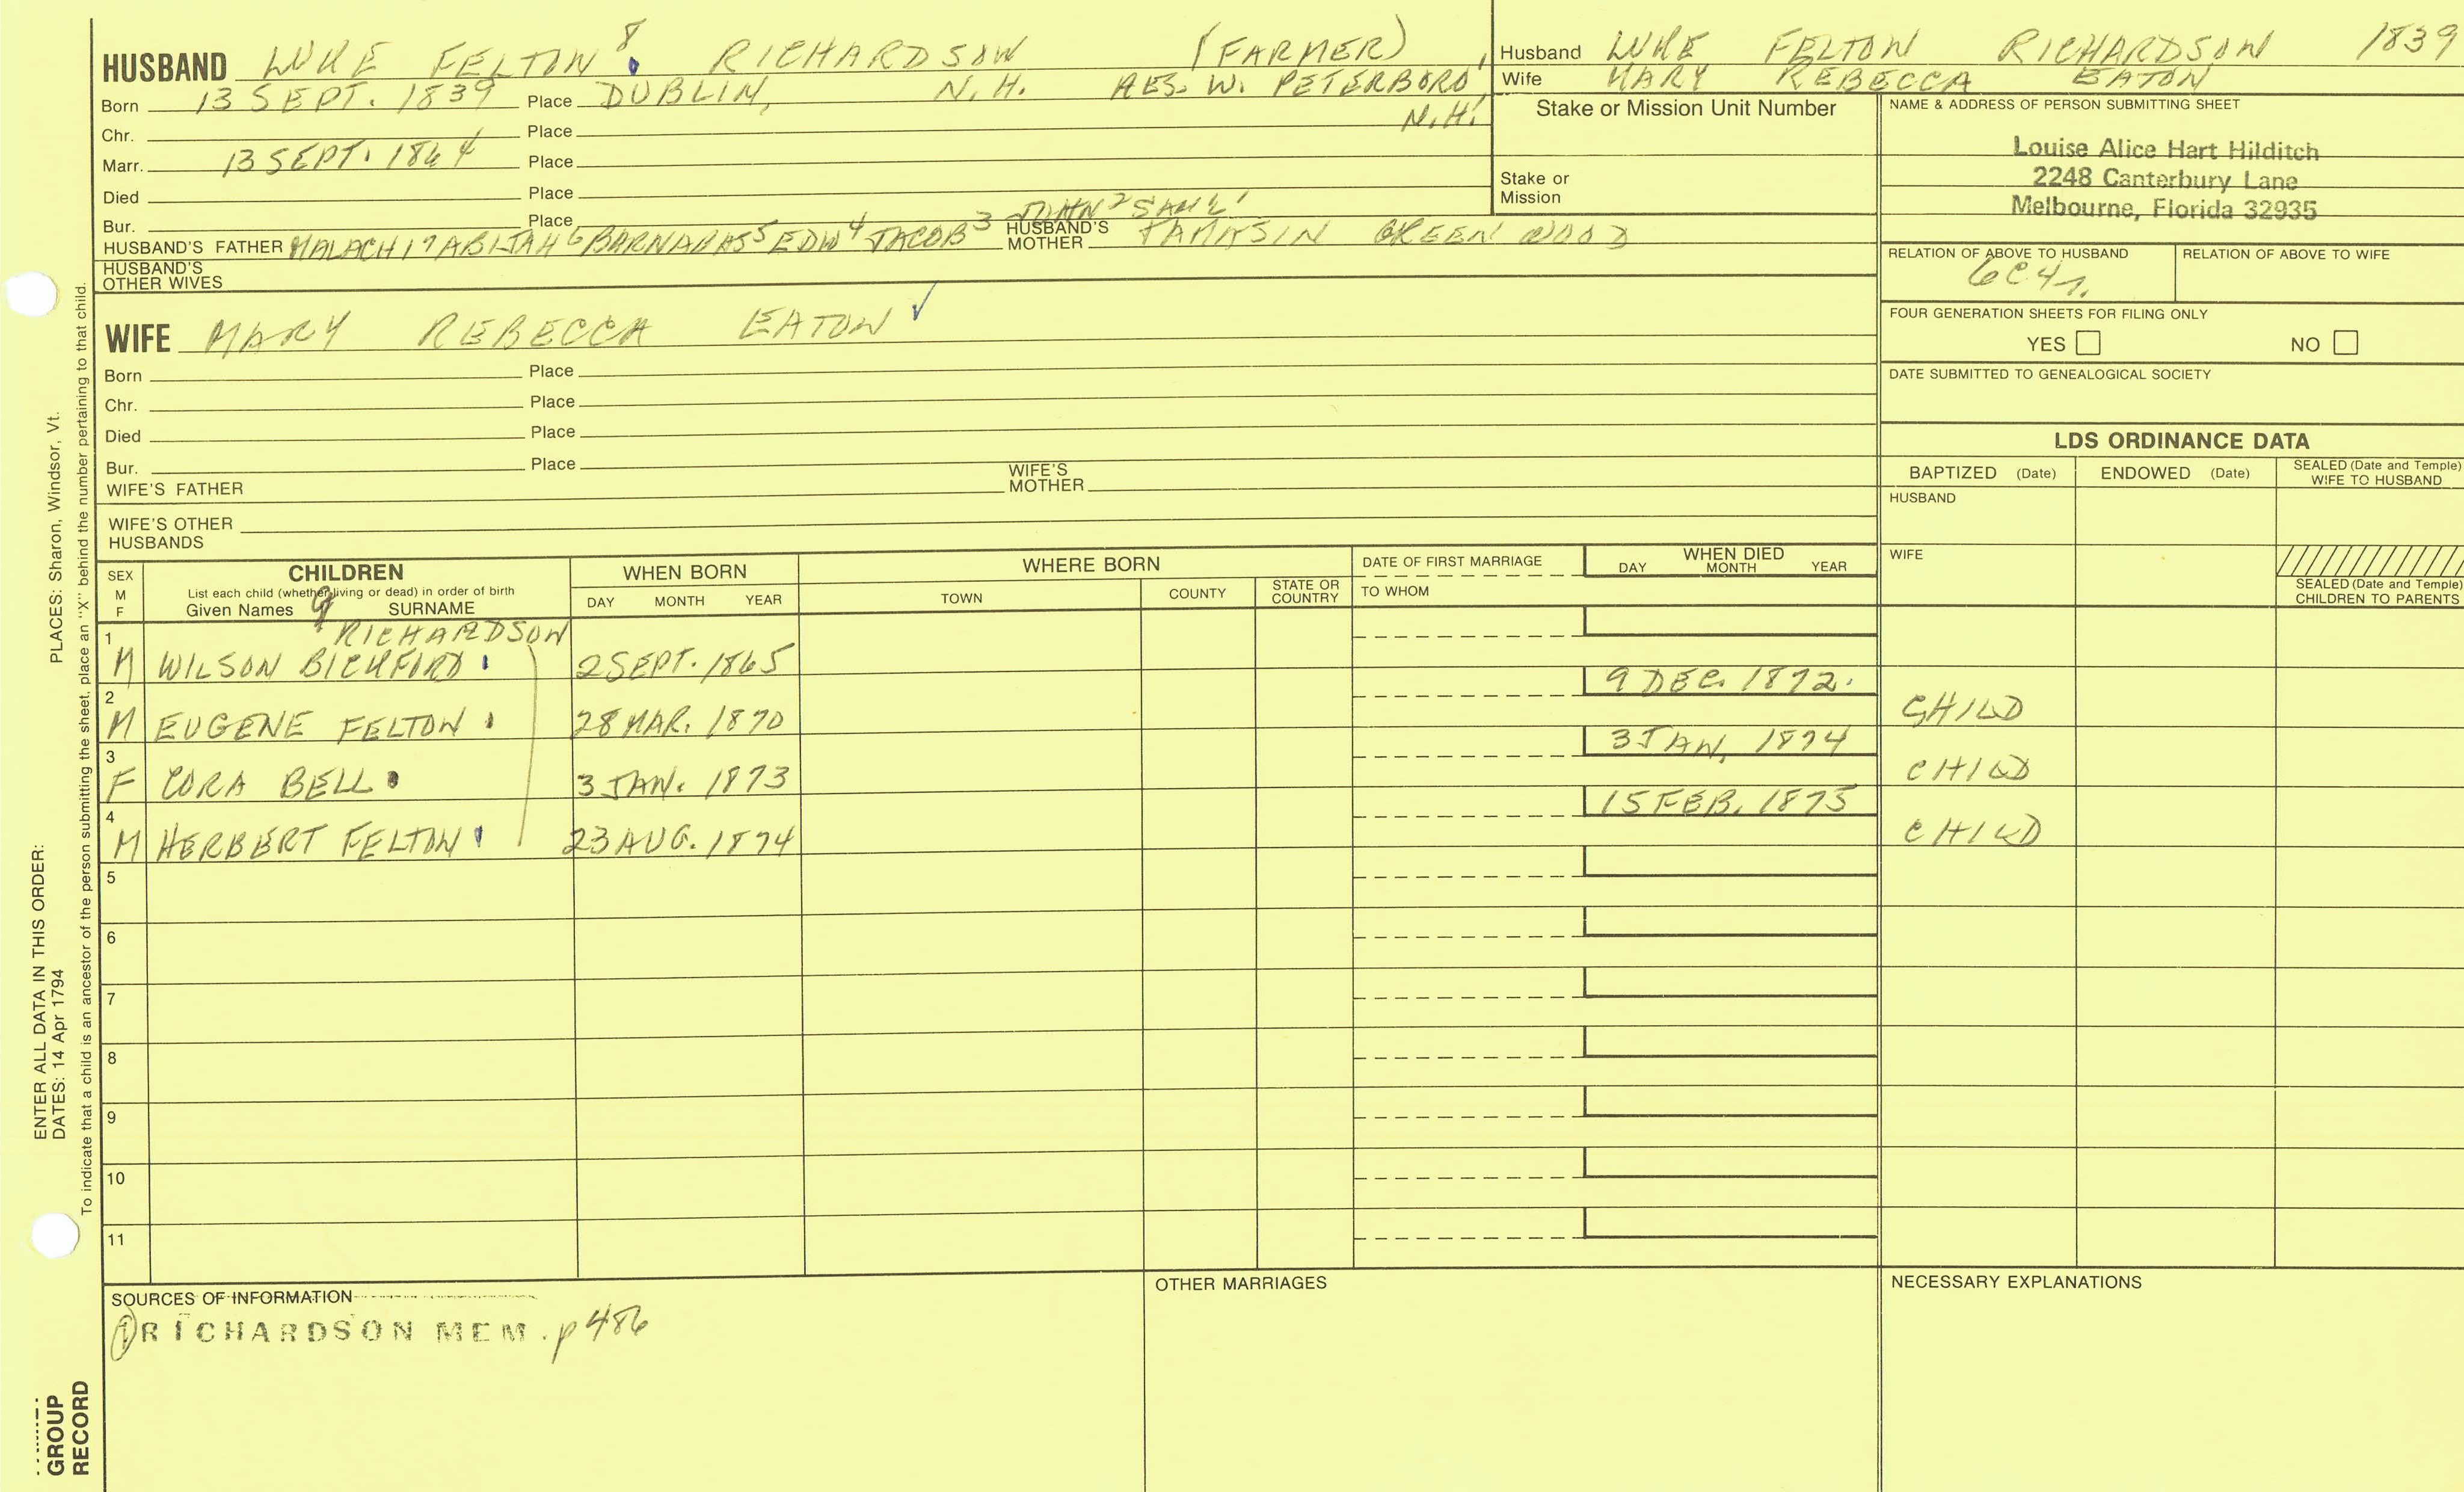 HUSBAND LUKE FELTON 8 RICHARDSON (FARMER)
Born 13 SEPT. 1839 Place DUBLIN, N.H. RES. W. PETERBORO, N.H.
Chr. Place
Marr. 13 SEPT. 1864 Place
Died Place
Bur. Place
HUSBAND'S FATHER MALACHI 7 ABIJAH 6 BARNABAS 5 EDW 4 JACOB 3 JOHN 2 SAML 1 HUSBAND'S MOTHER TAMASIN GREENWOOD
HUSBAND'S OTHER WIVES
WIFE MARY REBECCA EATON ✓
Born Place
Chr. Place
Died Place
Bur. Place
WIFE'S FATHER WIFE'S MOTHER
WIFE'S OTHER HUSBANDS
Husband LUKE FELTON RICHARDSON 1839
Wife MARY REBECCA EATON
Stake or Mission Unit Number
Stake or Mission
NAME & ADDRESS OF PERSON SUBMITTING SHEET
Louise Alice Hart Hilditch
2248 Canterbury Lane
Melbourne, Florida 32935
RELATION OF ABOVE TO HUSBAND RELATION OF ABOVE TO WIFE
6C4r.
FOUR GENERATION SHEETS FOR FILING ONLY
YES NO
DATE SUBMITTED TO GENEALOGICAL SOCIETY
LDS ORDINANCE DATA
BAPTIZED (Date) ENDOWED (Date) SEALED (Date and Temple) WIFE TO HUSBAND
HUSBAND
WIFE
SEALED (Date and Temple) CHILDREN TO PARENTS
SEX M F
CHILDREN
List each child (whether living or dead) in order of birth
Given Names 9 SURNAME
WHEN BORN
DAY MONTH YEAR
WHERE BORN
TOWN COUNTY STATE OR COUNTRY
DATE OF FIRST MARRIAGE
TO WHOM
WHEN DIED
DAY MONTH YEAR
RICHARDSON
1 M WILSON BICKFORD 2 SEPT. 1865
2 M EUGENE FELTON 28 MAR. 1870 9 DEC. 1872. CHILD
3 F CORA BELL 3 JAN. 1873 3 JAN. 1874 CHILD
4 M HERBERT FELTON 23 AUG. 1874 15 FEB. 1875 CHILD
5
6
7
8
9
10
11
SOURCES OF INFORMATION
① RICHARDSON MEM. p 486
OTHER MARRIAGES
NECESSARY EXPLANATIONS
ENTER ALL DATA IN THIS ORDER:
DATES: 14 Apr 1794
PLACES: Sharon, Windsor, Vt.
To indicate that a child is an ancestor of the person submitting the sheet, place an "X" behind the number pertaining to that child.
GROUP
RECORD